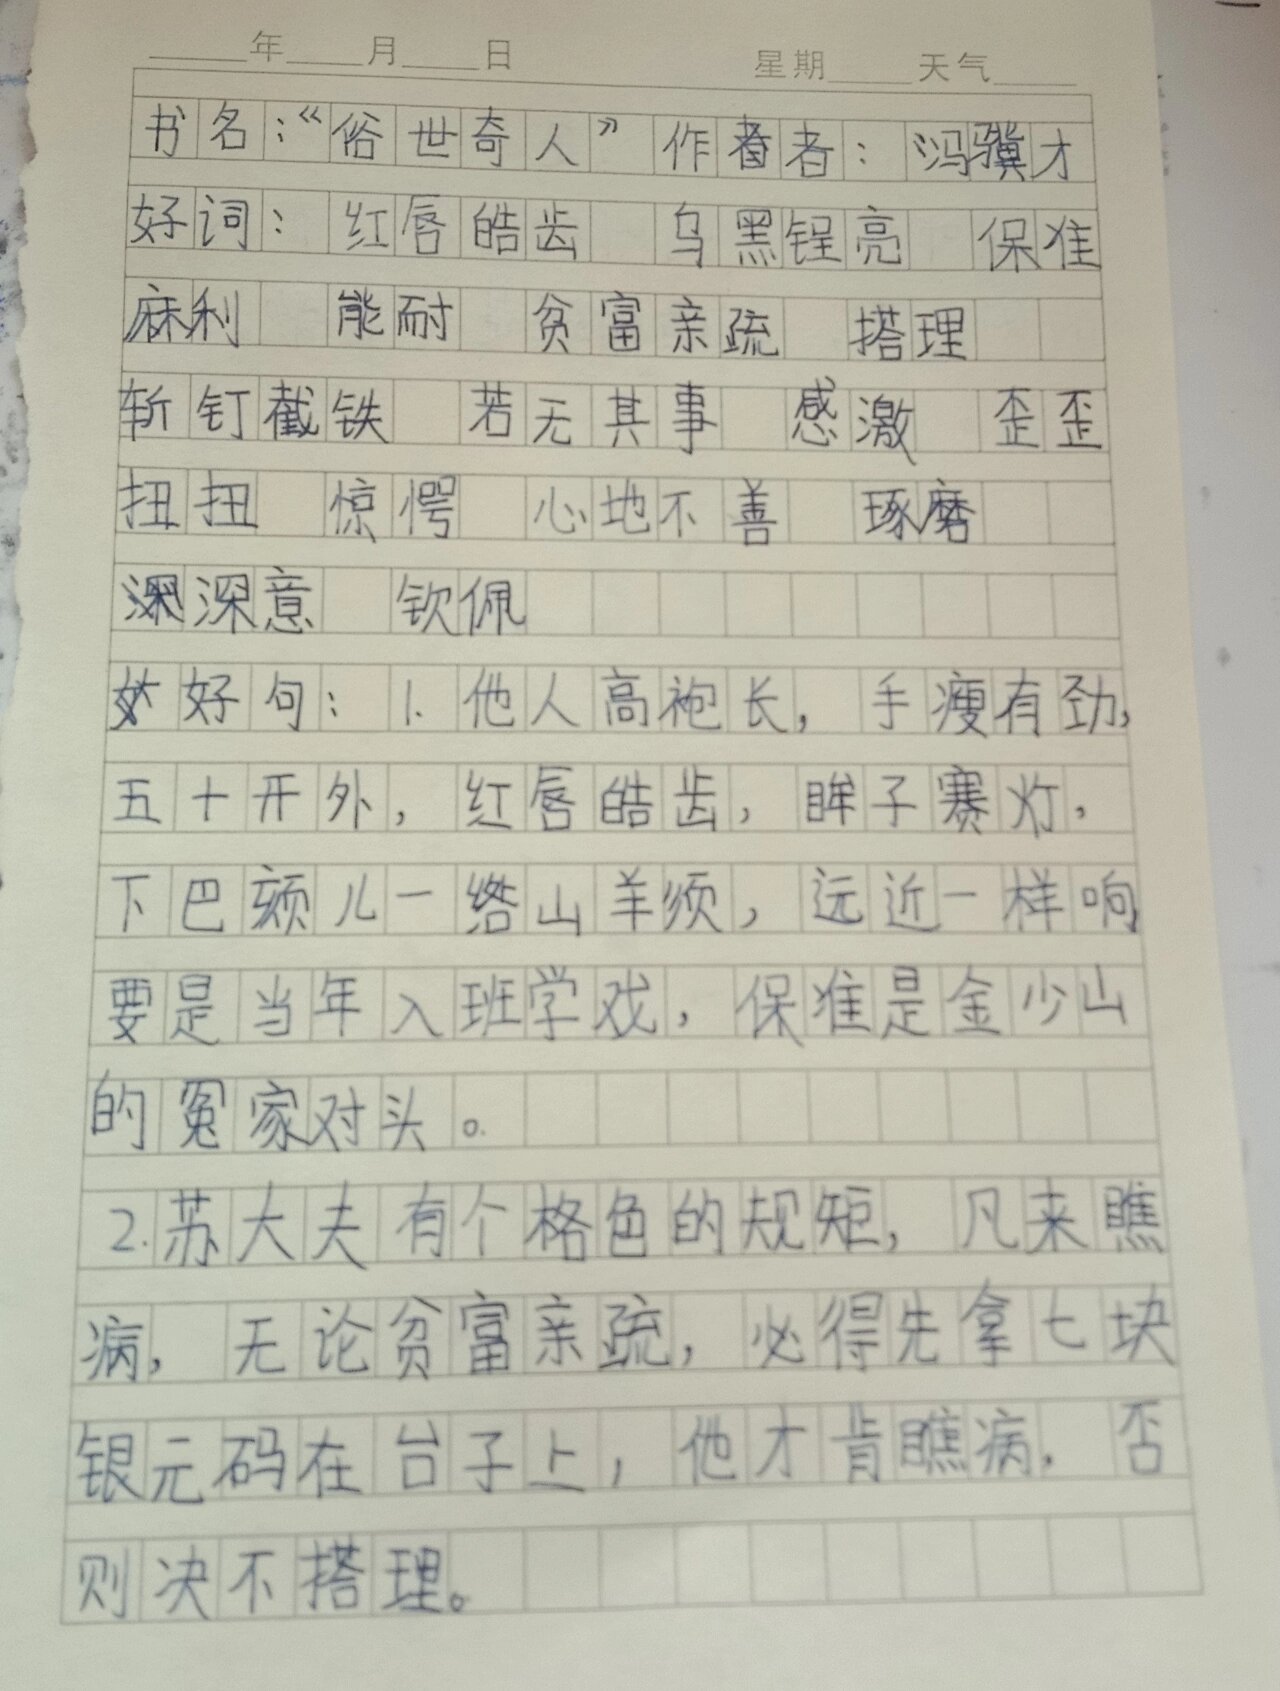 年 月 日 星期 天气
书名：“俗世奇人” 作者：冯骥才
好词：红唇皓齿 乌黑锃亮 保准
麻利 能耐 贫富亲疏 搭理
斩钉截铁 若无其事 感激 歪歪
扭扭 惊愕 心地不善 琢磨
深意 钦佩
好句：1.他人高袍长，手瘦有劲，
五十开外，红唇皓齿，眸子赛灯，
下巴颏儿一绺山羊须，远近一样响
要是当年入班学戏，保准是金少山
的冤家对头。
2.苏大夫有个格色的规矩，凡来瞧
病，无论贫富亲疏，必得先拿七块
银元码在台子上，他才肯瞧病，否
则决不搭理。